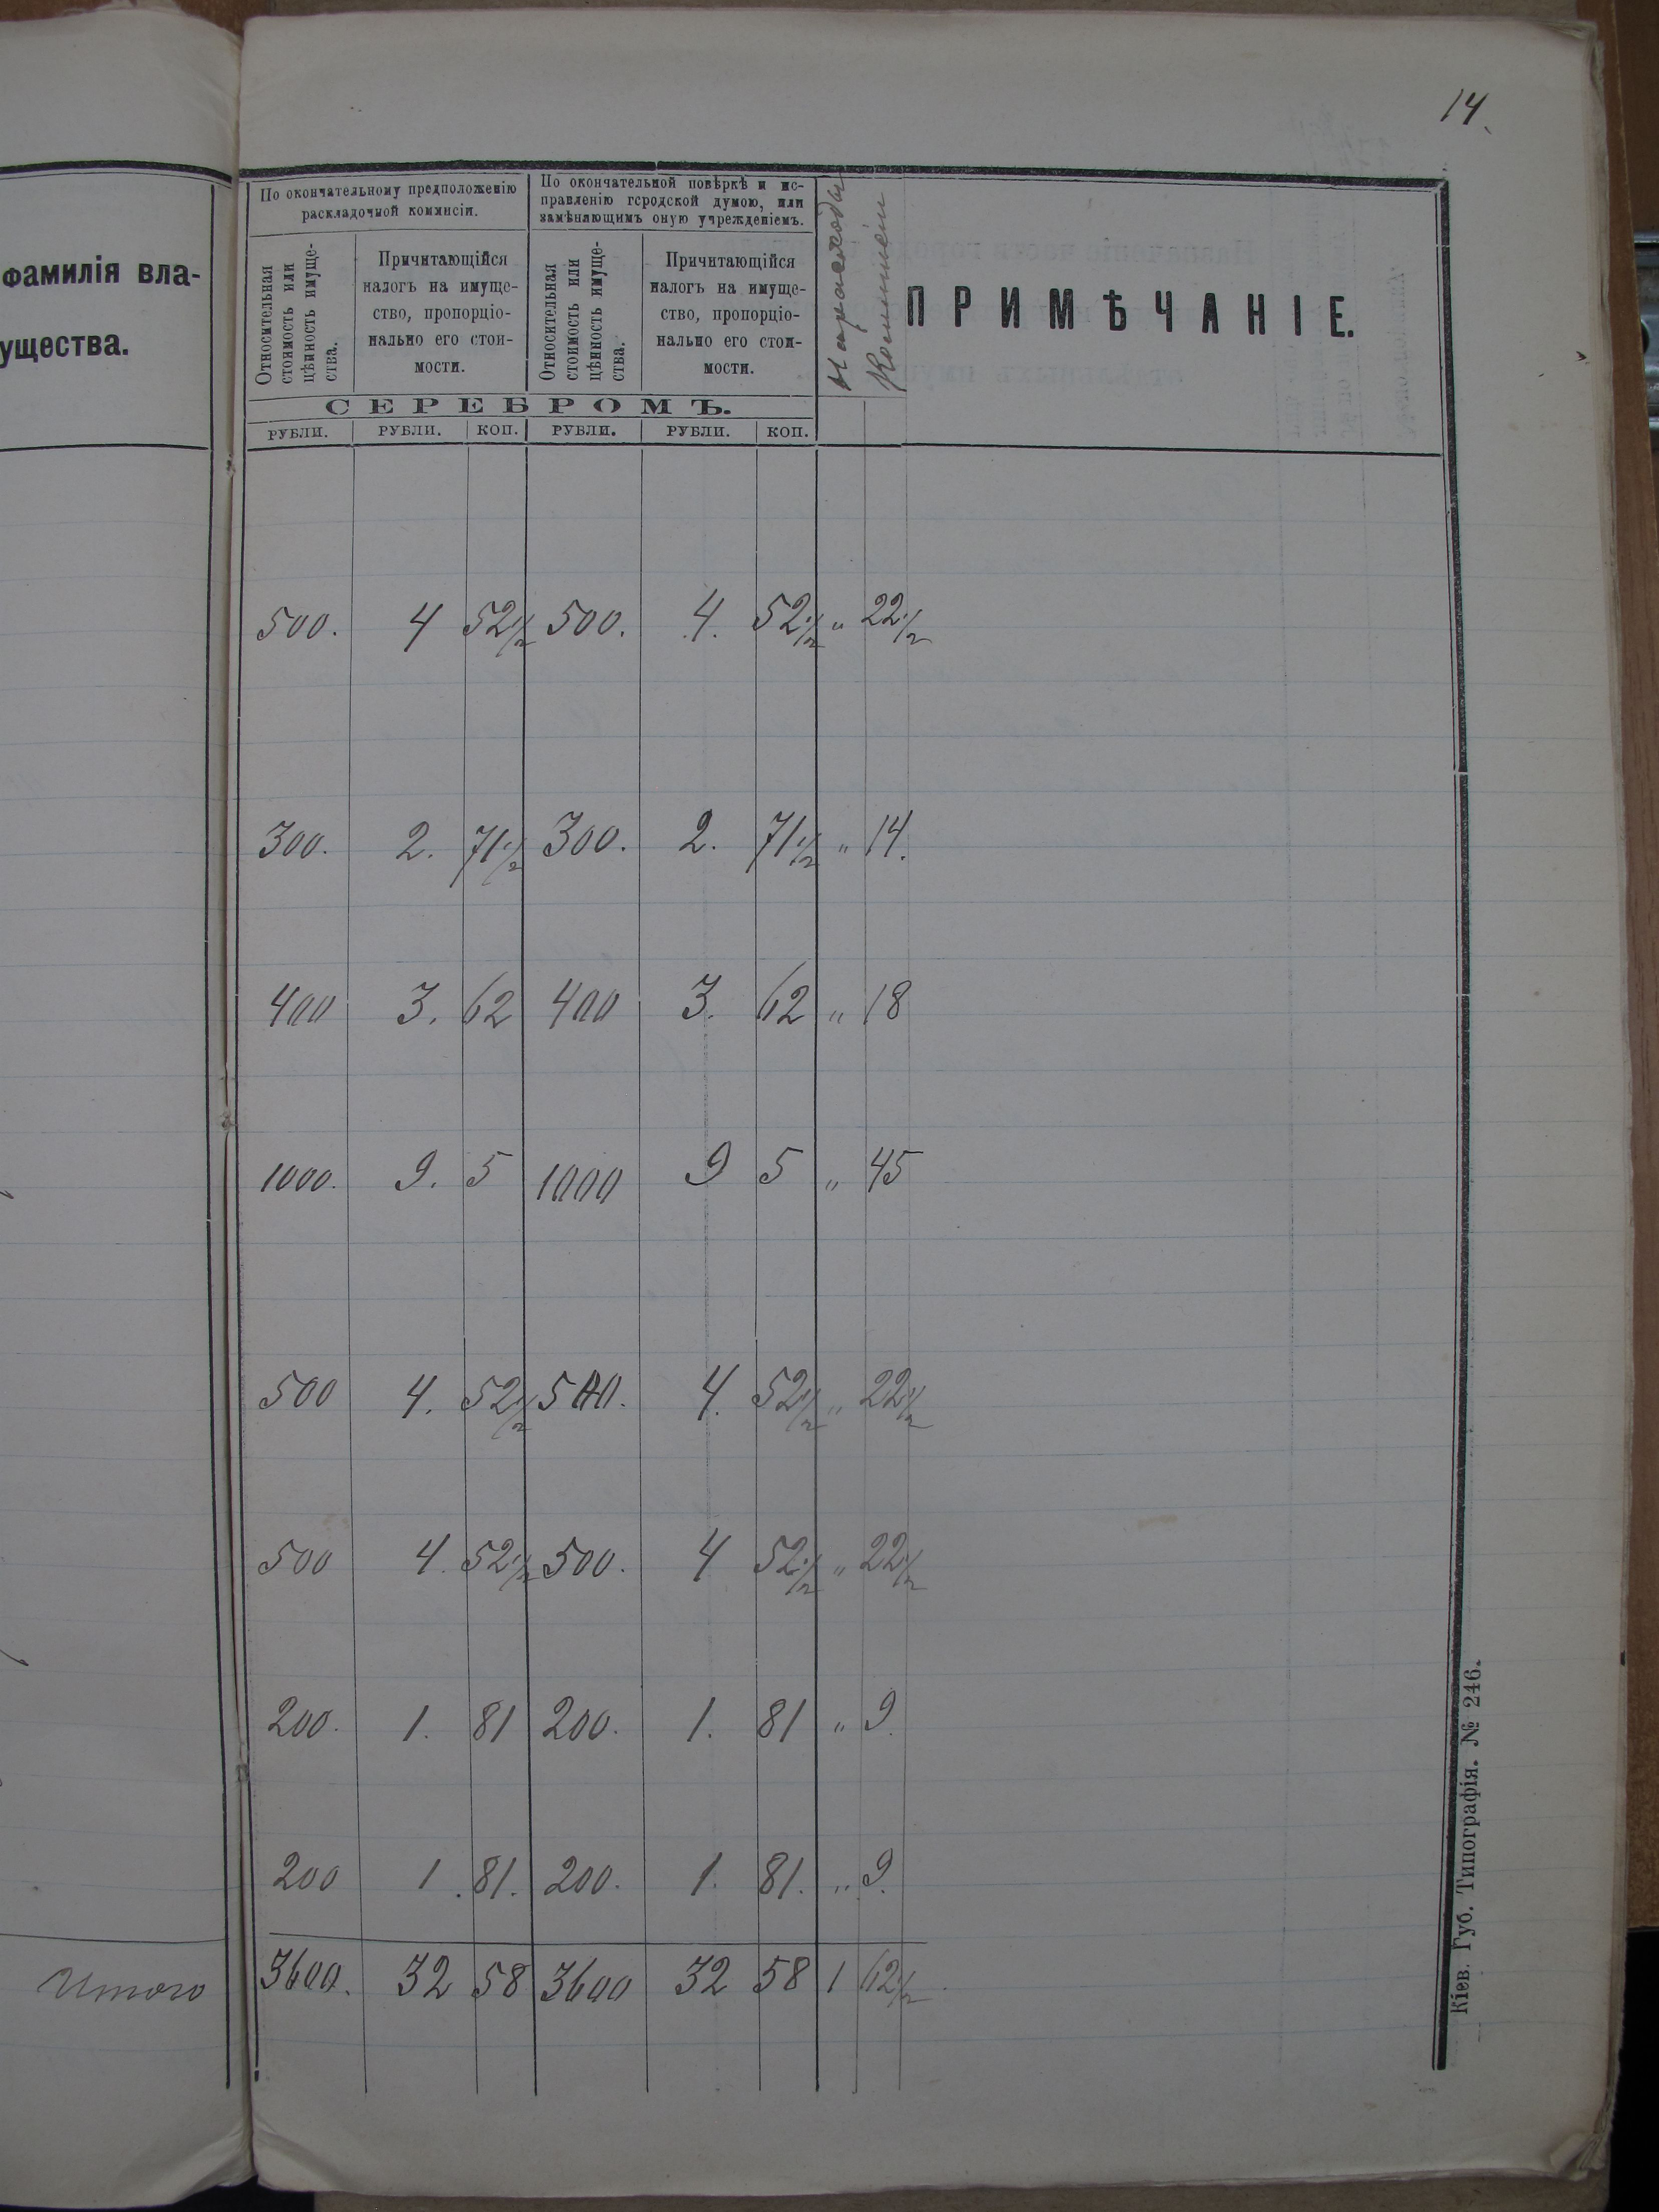 14.
фамилія вла-
ущества.
По окончательному предположенію
раскладочной коммисіи.
По окончательной повѣркѣ и ис-
правленію городской думою, или
замѣняющимъ оную учрежденіемъ.
На расходы
Коммисіи
ПРИМѢЧАНІЕ.
Относительная
стоимость или
цѣнность имуще-
ства.
Причитающійся
налогъ на имуще-
ство, пропорціо-
нально его стои-
мости.
Относительная
стоимость или
цѣнность имуще-
ства.
Причитающійся
налогъ на имуще-
ство, пропорціо-
нально его стои-
мости.
СЕРЕБРОМЪ.
РУБЛИ. РУБЛИ. КОП. РУБЛИ. РУБЛИ. КОП.
500. 4 52 1/2 500. 4. 52 1/2 " 22 1/2
300. 2. 71 1/2 300. 2. 71 1/2 " 14.
400 3. 62 400 3. 62 " 18
1000. 9. 5 1000 9 5 " 45
500 4. 52 1/2 500. 4. 52 1/2 " 22 1/2
500 4. 52 1/2 500. 4 52 1/2 " 22 1/2
200. 1. 81 200. 1. 81 " 9.
200 1. 81. 200. 1. 81. " 9.
Итого 3600. 32 58 3600 32 58 1 62 1/2
Кіев. Губ. Типографія. № 246.